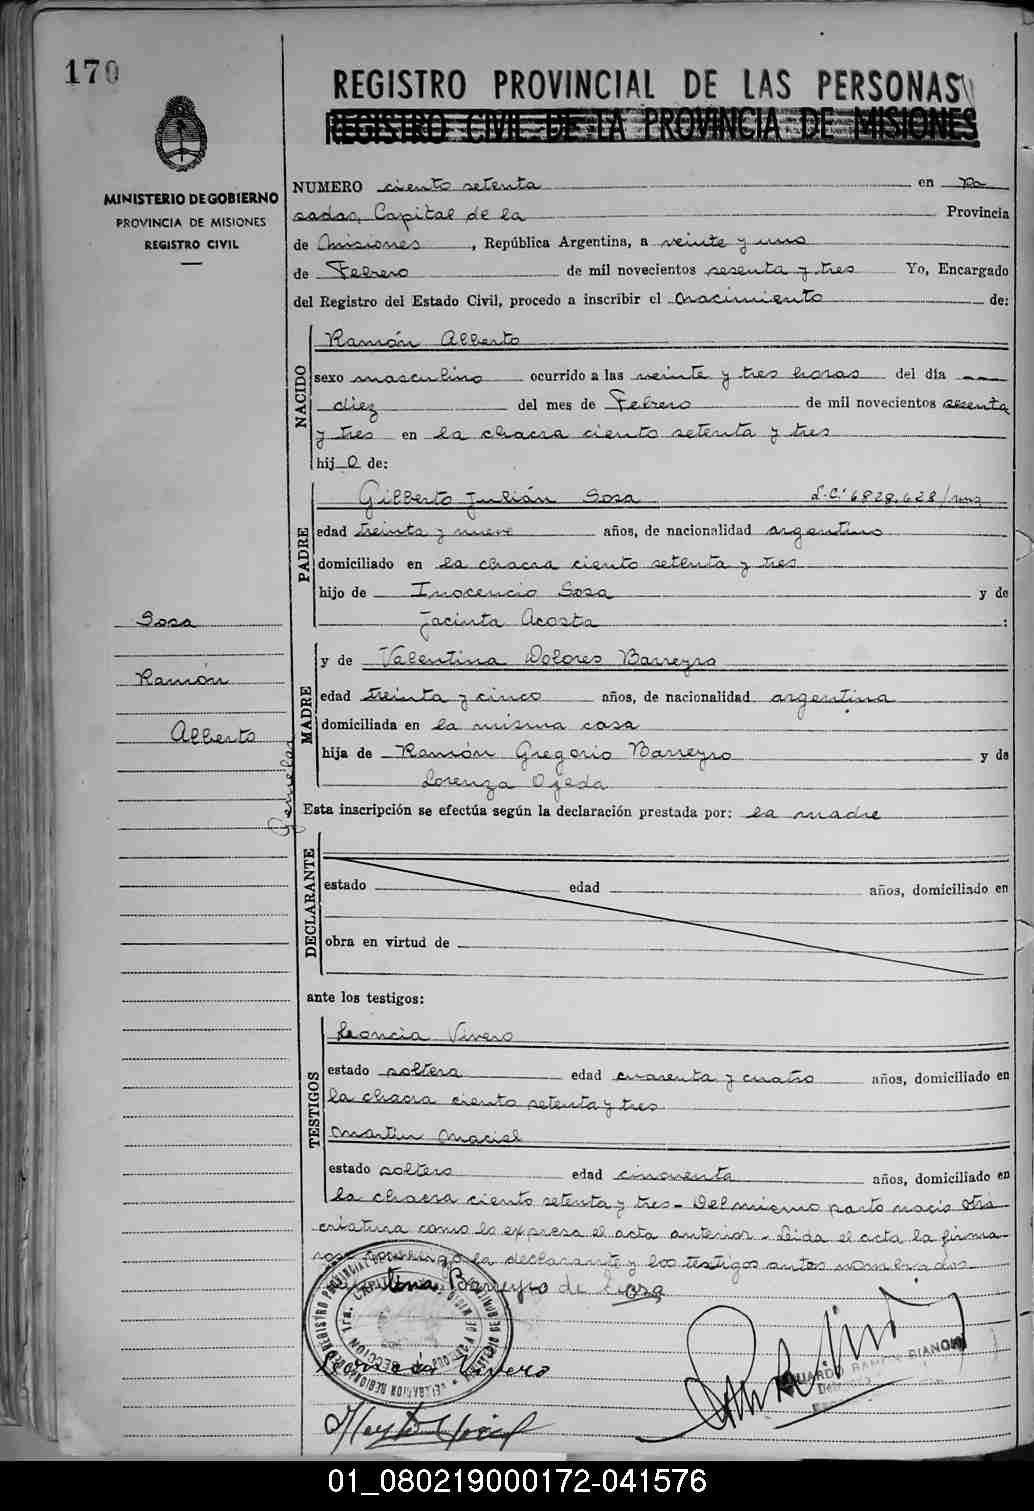 170
REGISTRO PROVINCIAL DE LAS PERSONAS
REGISTRO CIVIL DE LA PROVINCIA DE MISIONES
MINISTERIO DE GOBIERNO
PROVINCIA DE MISIONES
REGISTRO CIVIL
NUMERO ciento setenta en Po
sadas, Capital de la Provincia
de Misiones, República Argentina, a veinte y uno
de Febrero de mil novecientos sesenta y tres Yo, Encargado
del Registro del Estado Civil, procedo a inscribir el nacimiento de:
NACIDO
Ramón Alberto
sexo masculino ocurrido a las veinte y tres horas del día
diez del mes de Febrero de mil novecientos sesenta
y tres en la chacra ciento setenta y tres
hijo de:
PADRE
Gilberto Julián Sosa L.C: 6828.628/
edad treinta y nueve años, de nacionalidad argentino
domiciliado en la chacra ciento setenta y tres
hijo de Inocencio Sosa y de
Jacinta Acosta :
MADRE
y de Valentina Dolores Barreyro
edad treinta y cinco años, de nacionalidad argentina
domiciliada en la misma casa
hija de Ramón Gregorio Barreyro y de
Lorenza Ojeda
Sosa
Ramón
Alberto
Gemelas
Esta inscripción se efectúa según la declaración prestada por: la madre
DECLARANTE
estado edad años, domiciliado en
obra en virtud de
ante los testigos:
TESTIGOS
Leoncia Vivero
estado soltera edad cuarenta y cuatro años, domiciliado en
la chacra ciento setenta y tres
Martin Maciel
estado soltero edad cincuenta años, domiciliado en
la chacra ciento setenta y tres - Del mismo parto nació otra
criatura como lo expresa el acta anterior - Leida el acta la firma-
ron conmigo la declarante y los testigos antes nombrados
Barreyro de Sosa
Vivero
EDUARDO RAMON BIANCHI
01_080219000172-041576